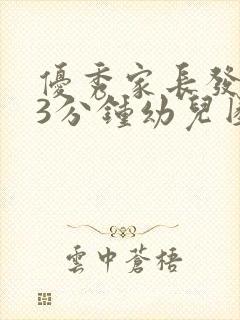 優秀家長發
3分鍾幼兒
雲中蒼梧